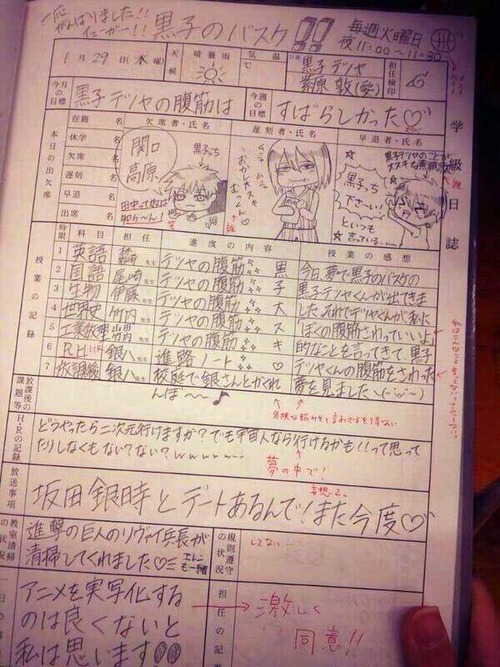 がんばりました!!
黒子のバスケ!!
毎週火曜日
夜11:00〜11:30
1月29日(水曜)
天候
晴曇雨
気温
℃
黒子テツヤ
紫原敦(愛)
担任検印
今月の目標
黒子テツヤの腹筋は
今週の目標
すばらしかった♡
学級日誌
本日の出欠席
在籍 名
休学 名
欠席 名
遅刻 名
早退 名
出席 名
欠席者・氏名
関口
高原
遅刻者・氏名
早退者・氏名
黒子テツヤのことが
黒子っち
下さーい!
といつも
言っている…
授業の記録
時限 科目 担任 進度の内容 授業の感想
1 英語 テツヤの腹筋 黒
2 国語 尾崎先生 テツヤの腹筋 子
3 生物 伊藤先生 テツヤの腹筋 大
4 世界史 竹内先生 テツヤの腹筋 ス
5 先生 テツヤの腹筋 キ
6 RH 銀八先生 進路ノート ♡
7 放課後 銀八先生 校庭で銀さんとかくれ
んぼ〜〜♪
今日、夢で黒子のバスケの
黒子テツヤくんが出てきま
した。それでテツヤくんが私に
「ぼくの腹筋さわっていいよ」
的なことを言ってきて、黒子
テツヤくんの腹筋をさわった
夢を見ました
放課後の課題等
H・Rの記録
どうやったら二次元行けますか?でも宇宙人なら行けるかも!!って思っ
たりしなくもない?ない?wwwwww
夢の中で!
放送事項
坂田銀時とデートあるんで!また今度♡
妄想乙。
教室清掃の状況
進撃の巨人のリヴァイ兵長が
清掃してくれました♡
エレンも一緒
規則遵守の状況
してない…
アニメを実写化する
のは良くないと
私は思います
担任の記
→激しく
同意!!